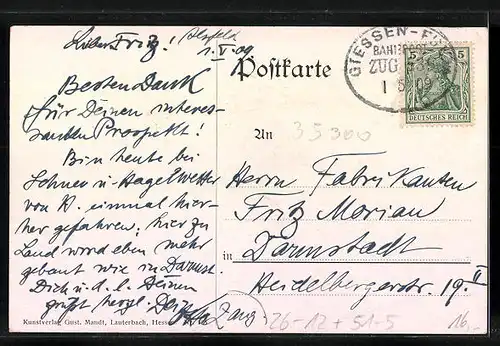 Lieber Fritz! Alsfeld
1. V. 09
Besten Dank
für Deinen interes-
santen Prospekt!
Bin heute bei
Schnee u. Hagelwetter
von H. einmal hier-
her gefahren; hier zu
Land wird eben mehr
gebaut wie in Darmst.
Dich u. d. l. Deinen
grüsst herzl. Dein
Kunstverlag Gust. Mandt, Lauterbach, Hessen
Postkarte
GIESSEN-FU
BAHNPOST
ZUG
1 5 09
5 5
DEUTSCHES REICH
An
35300
Herrn Fabrikanten
Fritz Morian
in Darmstadt
Heidelbergerstr. 19. II
26-12 + 51-5
16,-